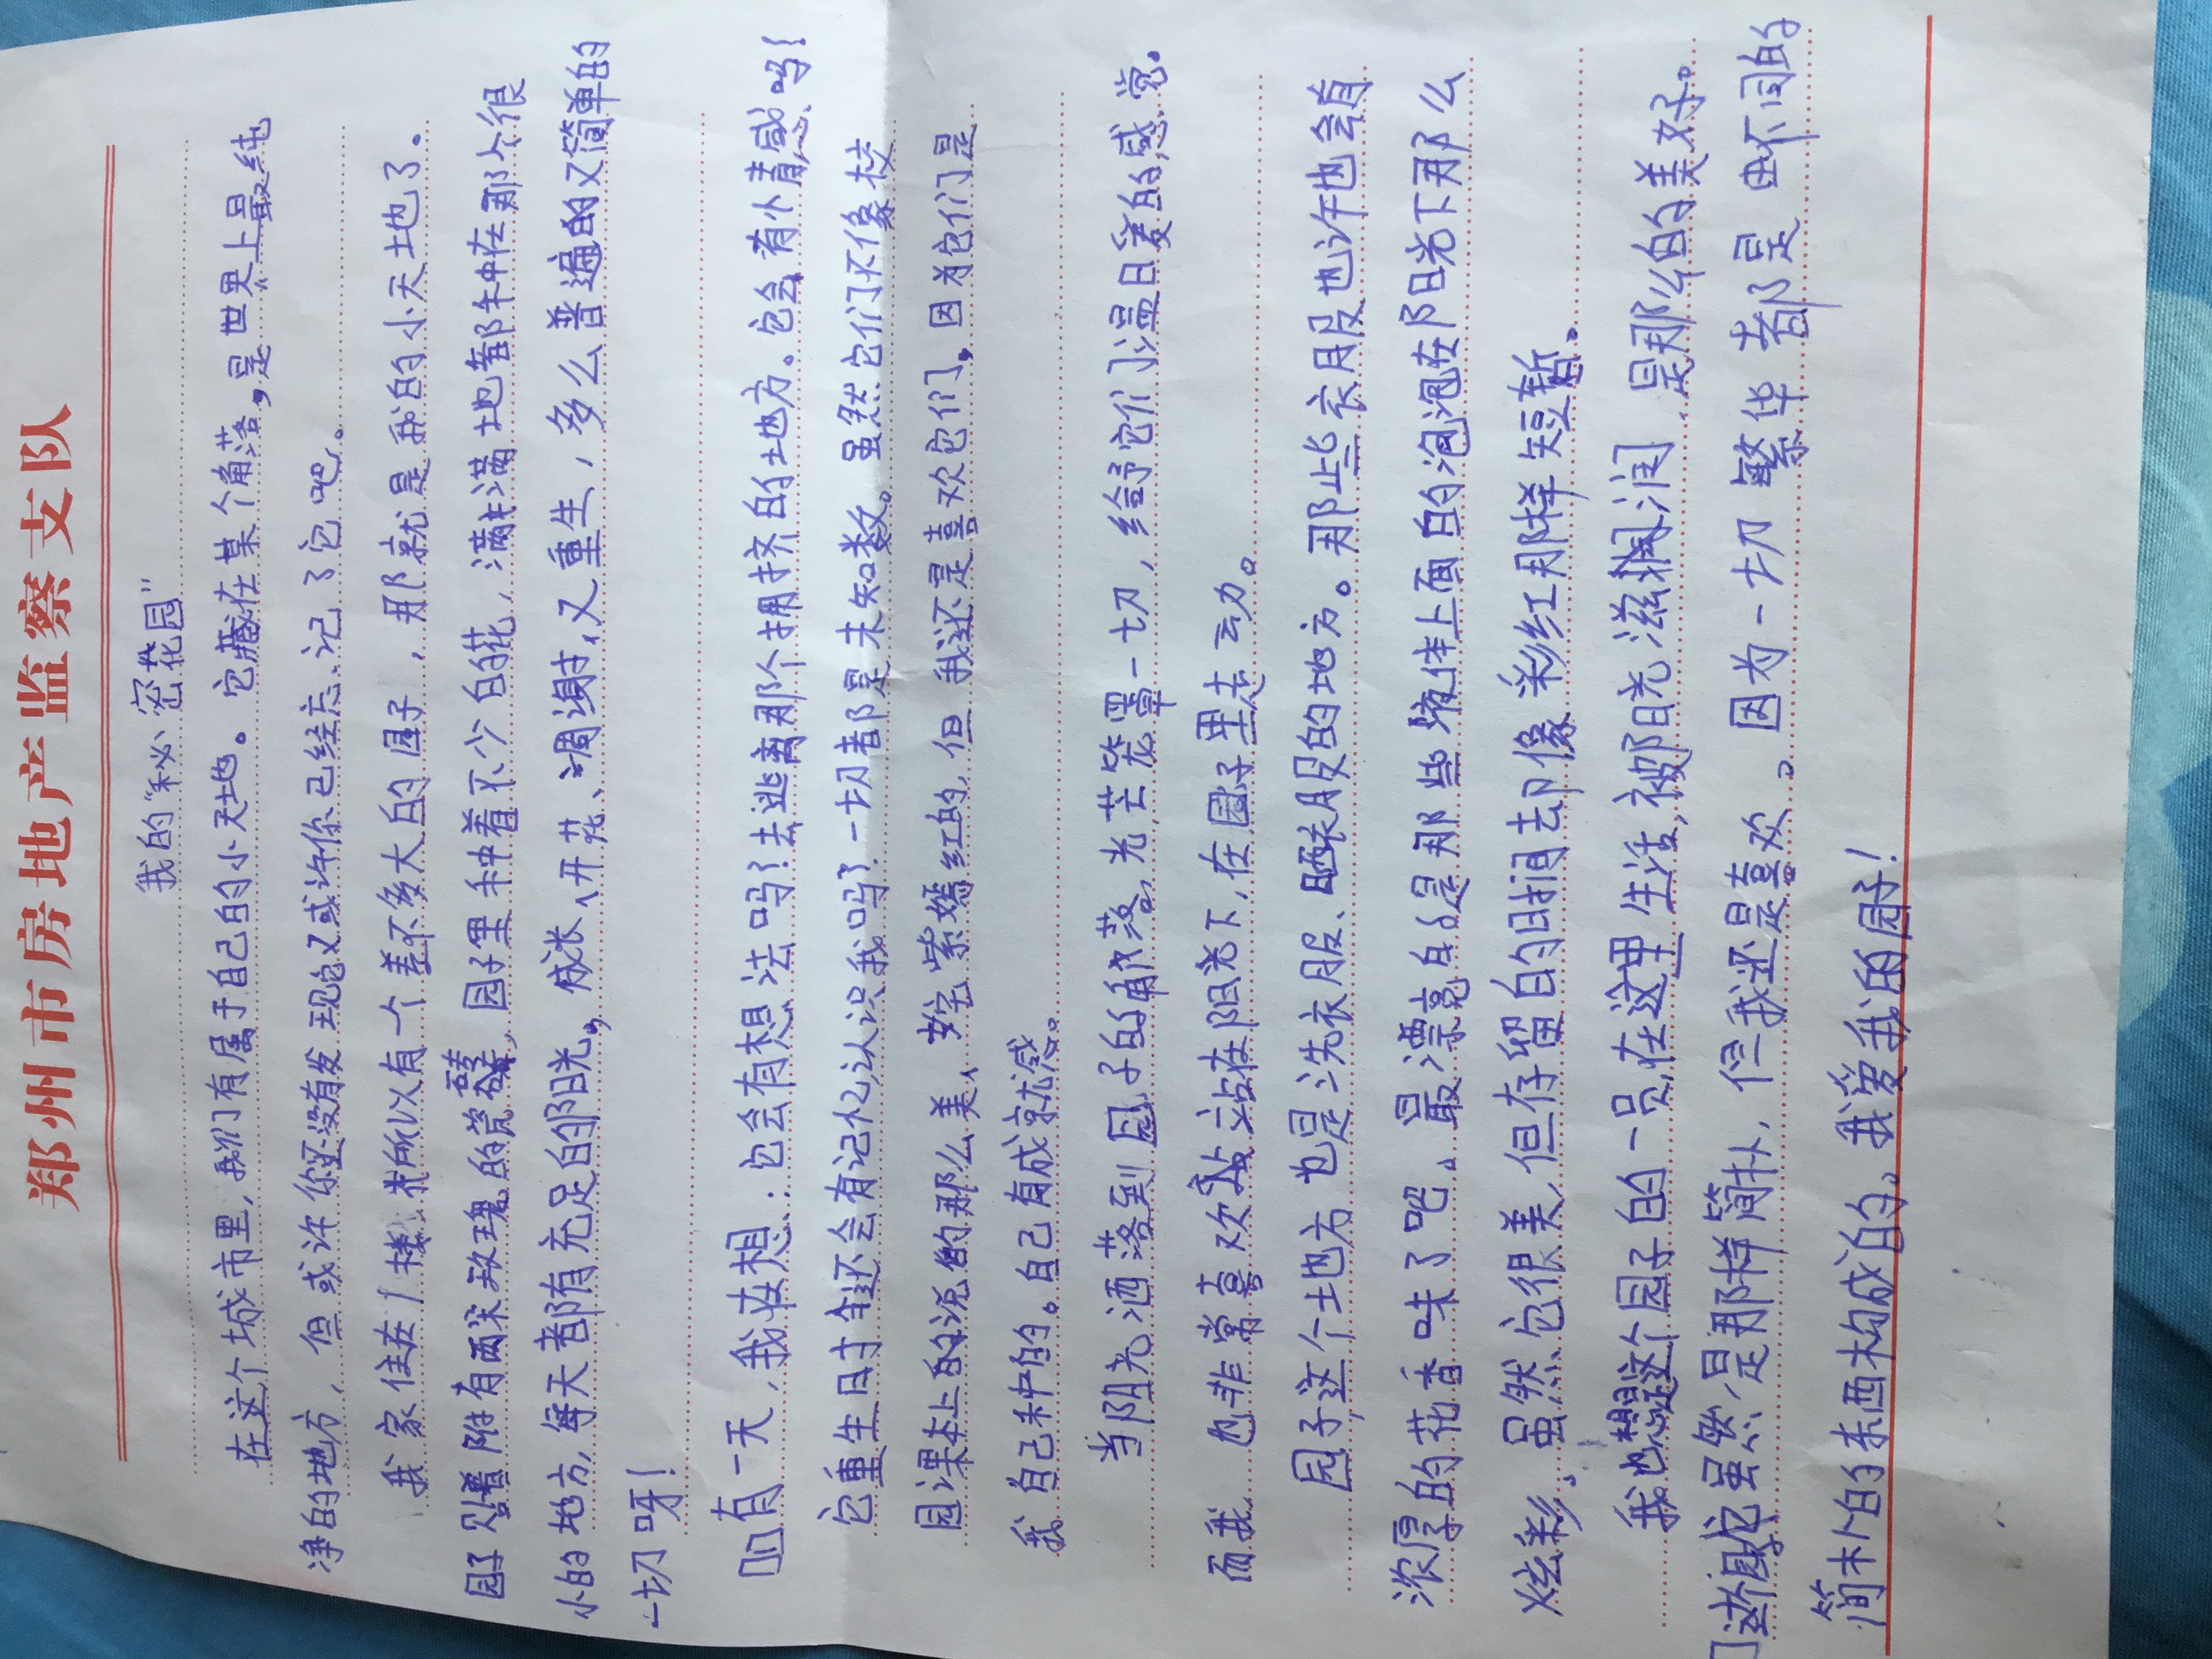 郑州市房地产监察支队
我的“秘密花园”
在这个城市里,我们有属于自己的小天地。它藏在某个角落,是世界上最纯
净的地方,但或许你还没有发现又或许你已经忘记了它吧。
我家住在1楼所以有一个差不多大的园子,那就是我的小天地了。
园子紧附有两朵玫瑰的瓷壁,园子里种着不少的花,满满地都种在那个很
小的地方,每天都有充足的阳光,成长、开花、凋谢,又重生,多么普遍的又简单的
一切呀!
有一天,我在想:它会有想法吗?去逃离那个拥挤的地方。它会有小情感吗!
它重生时还会有记忆,认识我吗?一切都是未知数。虽然它们不像校
园课本上的说的那么美、姹紫嫣红的,但我还是喜欢它们。因为它们是
我自己种的。自己有成就感。
当阳光洒落到园子的角落,光芒笼罩一切,给予它们温暖的感觉。
而我也非常喜欢站在阳光下,在园子里走动。
园子,这个地方也是洗衣服、晒衣服的地方。那些衣服也许也会有
浓厚的花香味了吧。最漂亮的是那些液体上面的泡泡在阳光下那么
炫彩,虽然它很美,但存留的时间去却像彩红那样短暂。
我也想这个园子的一员,在这里生活,被阳光滋润,是那么的美好。
它虽然是那样简朴,但我还是喜欢。因为一切繁华都是由不同的
简朴的东西构成的。我爱我的园子!